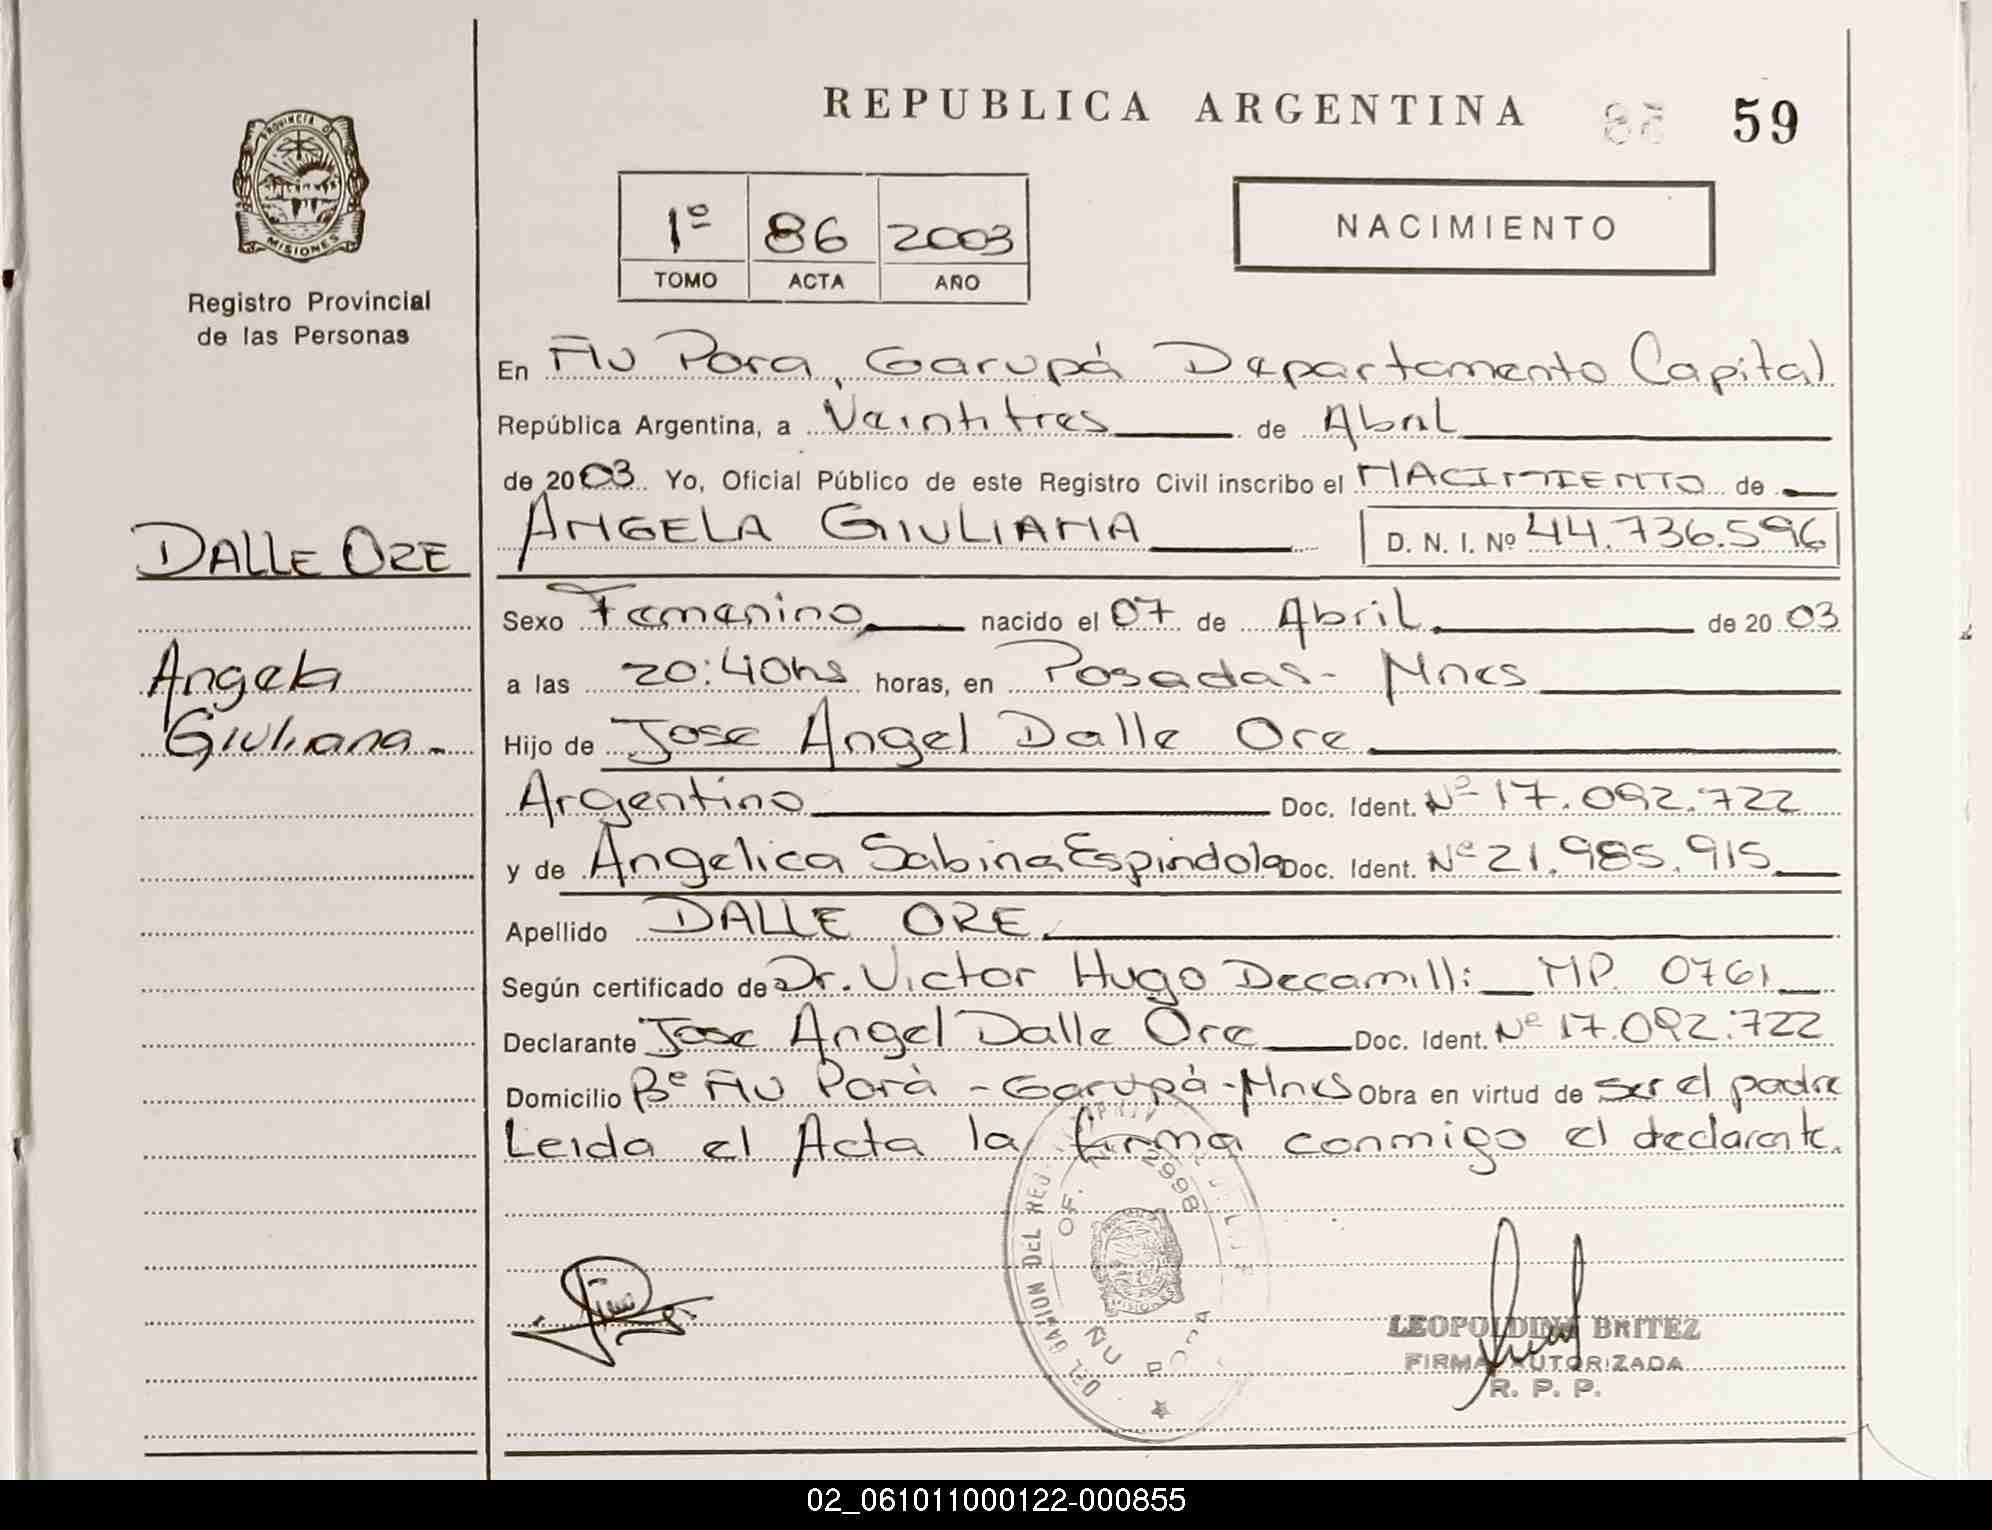 REPUBLICA ARGENTINA 59
PROVINCIA DE MISIONES
Registro Provincial
de las Personas
1º 86 2003
TOMO ACTA AÑO
NACIMIENTO
En Ñu Pora, Garupá Departamento Capital
República Argentina, a Veintitres de Abril
de 2003 Yo, Oficial Público de este Registro Civil inscribo el NACIMIENTO de
DALLE ORE
ANGELA GIULIANA D. N. I. Nº 44.736.596
Sexo Femenino nacido el 07 de Abril de 2003
Angela
a las 20:40hs horas, en Posadas - Mnes
Giuliana.
Hijo de Jose Angel Dalle Ore
Argentino Doc. Ident. Nº 17.092.722
y de Angelica Sabina Espindola Doc. Ident. Nº 21.985.915
Apellido DALLE ORE
Según certificado de Dr. Victor Hugo Decamilli MP. 0761
Declarante Jose Angel Dalle Ore Doc. Ident. Nº 17.092.722
Domicilio Bº Ñu Porá - Garupá - Mnes Obra en virtud de ser el padre
Leida el Acta la firma conmigo el declarante.
OF. 2998
ÑU PORA
LEOPOLDINA BRITEZ
FIRMA AUTORIZADA
R. P. P.
02_061011000122-000855